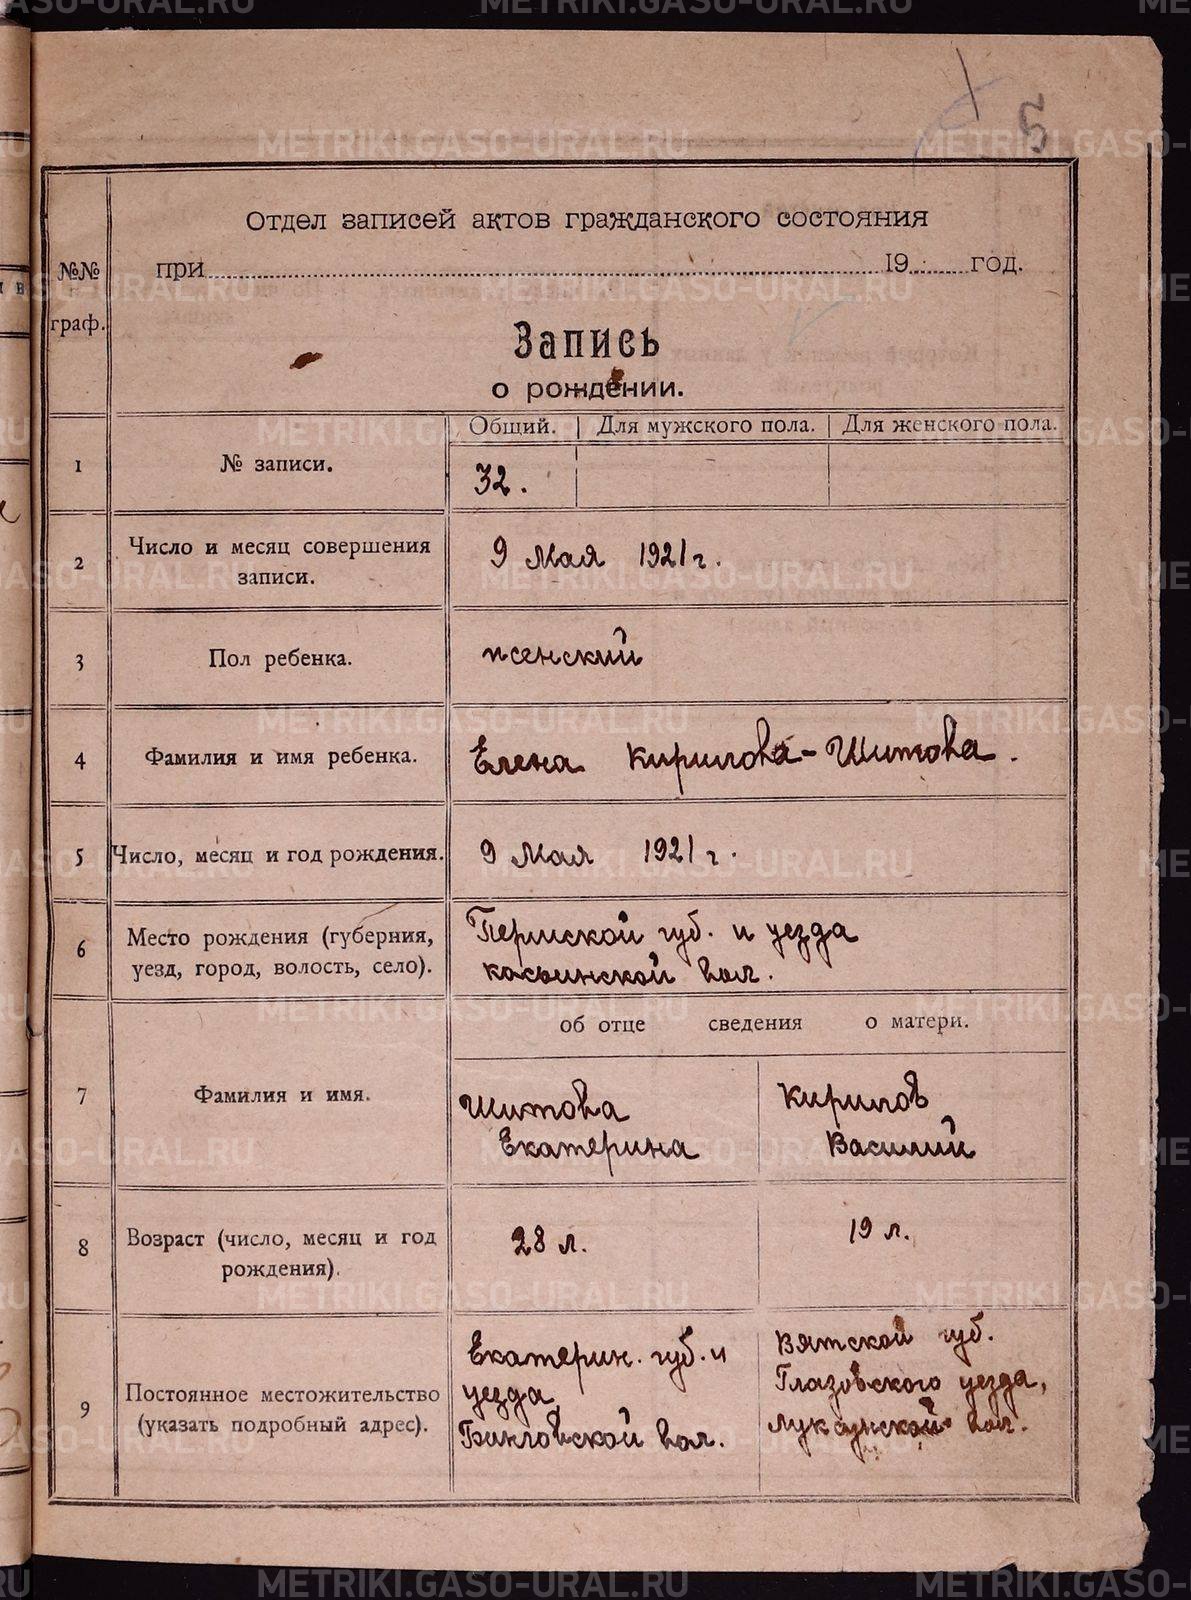 5
Отдел записей актов гражданского состояния
№№
при 19 год.
граф.
Запись
о рождении.
Общий. Для мужского пола. Для женского пола.
1 № записи.
32.
2 Число и месяц совершения
записи.
9 Мая 1921 г.
3 Пол ребенка.
женский
4 Фамилия и имя ребенка.
Елена Кирилова-Шитова.
5 Число, месяц и год рождения.
9 Мая 1921 г.
6 Место рождения (губерния,
уезд, город, волость, село).
Пермской губ. и уезда
Касьинской вол.
об отце сведения о матери.
7 Фамилия и имя.
Шитова
Екатерина
Кирилов
Василий
8 Возраст (число, месяц и год
рождения).
28 л.
19 л.
9 Постоянное местожительство
(указать подробный адрес).
Екатерин. губ. и
уезда
Бынговской вол.
Вятской губ.
Глазовского уезда,
вол.
METRIKI.GASO-URAL.RU